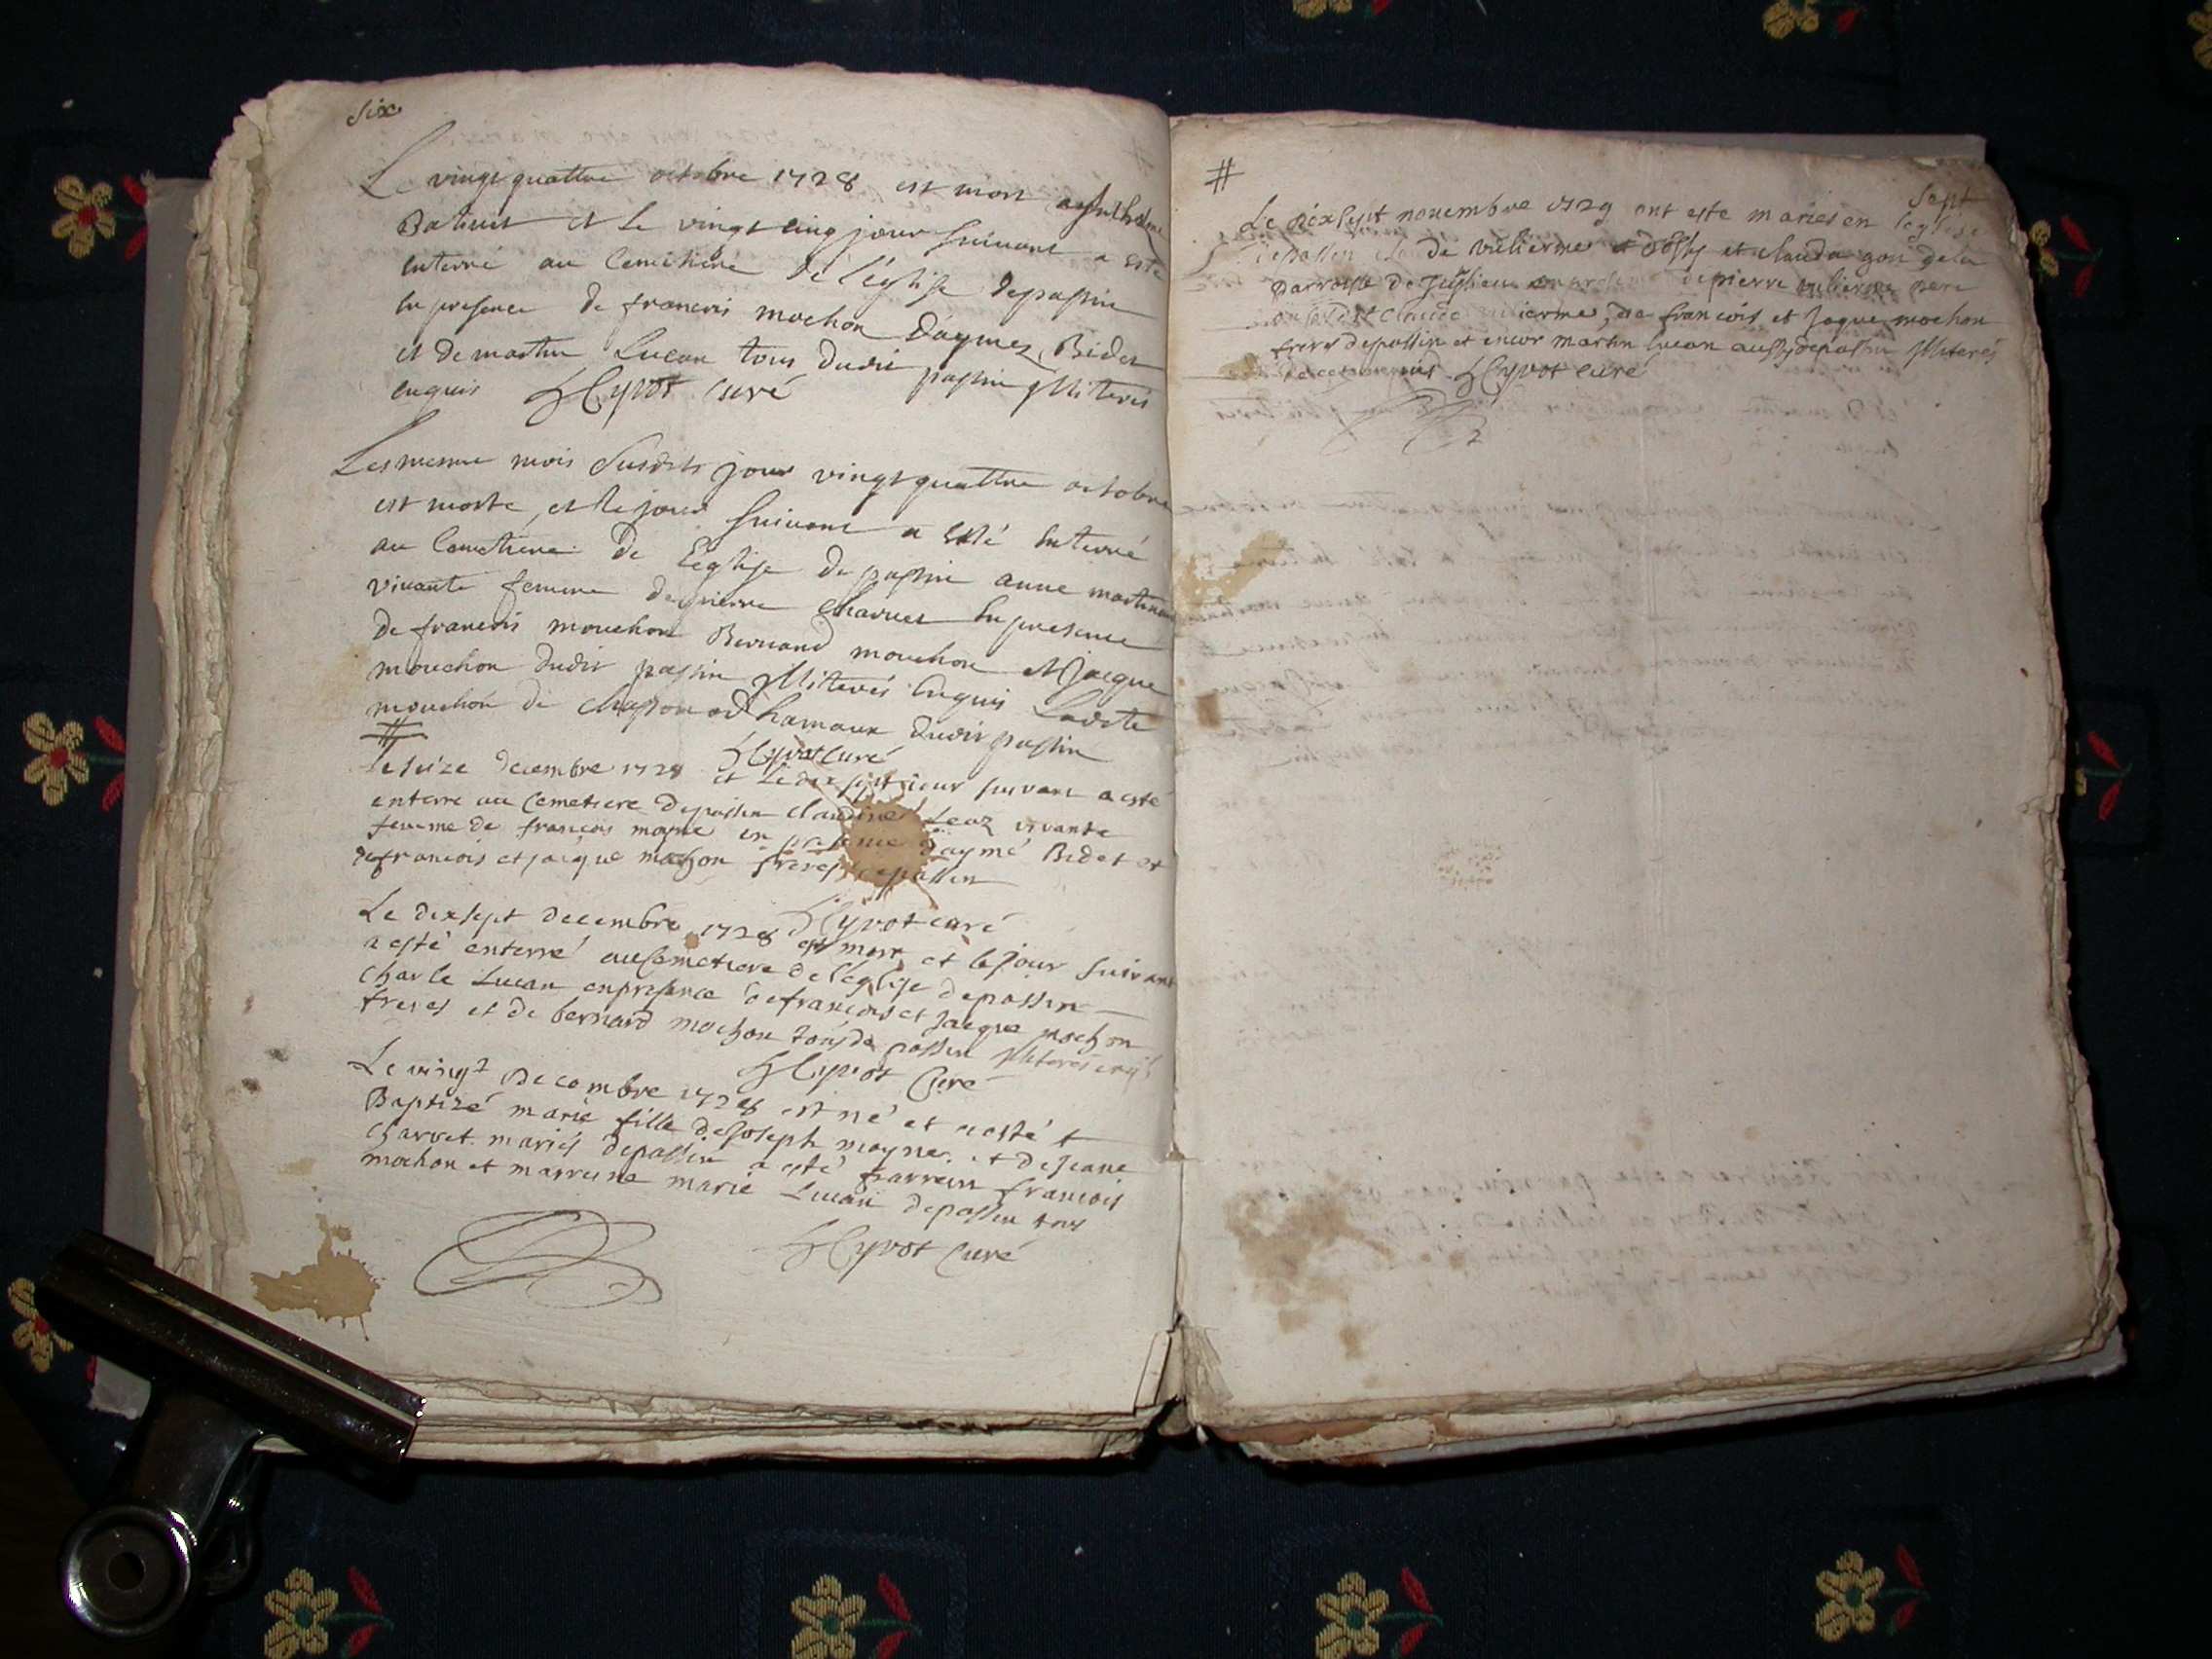 six
Le vingt quattre octobre 1728 est mort
et le vingt cinq jour suivant a esté
enterré au cemetiere de l'eglise de passin
en presence de francois mochon d'aymé Bidet
et de martin Lucan tous dudit passin illiterés
enquis Hyvot curé
Les mesme mois susdits jour vingt quattre octobre
est morte, et le jour suivant a esté enterré
au cemetiere de l'eglise de passin anne
vivante femme de pierre charvet en presence
de francois mouchon Bernard mouchon et jacque
mouchon dudit passin illiterés enquis Ladite
mouchon de hamaux dudit passin
#
Hyvot curé
le seize decembre 1728 et le dix sept jour suivant a esté
enterré au cemetiere de passin claudine vivante
femme de françois mayne en presence d'aymé Bidet et
de francois et jacque mochon freres de passin
Hyvot curé
Le dix sept decembre 1728 est mort et le jour suivant
a esté enterré au cemetiere de l'eglise de passin
charle Lucan en presence de françois et jacque mochon
freres et de bernard mochon tous de passin illiterés
Hyvot curé
Le vingt decembre 1728 est né et a esté
Baptizé marie fille de joseph mayne et de jeane
charvet mariés de passin a esté parrein francois
mochon et marreine marie Lucan de passin tous
Hyvot curé
#
sept
Le dixsept novembre 1729 ont esté mariés en l'eglise
de passin vulierme et clauda de la
parroisse de de pierre vulierme pere
claude vulierme, de francois et jaque mochon
freres de passin et encor martin lucan aussy de passin illiterés
Hyvot curé